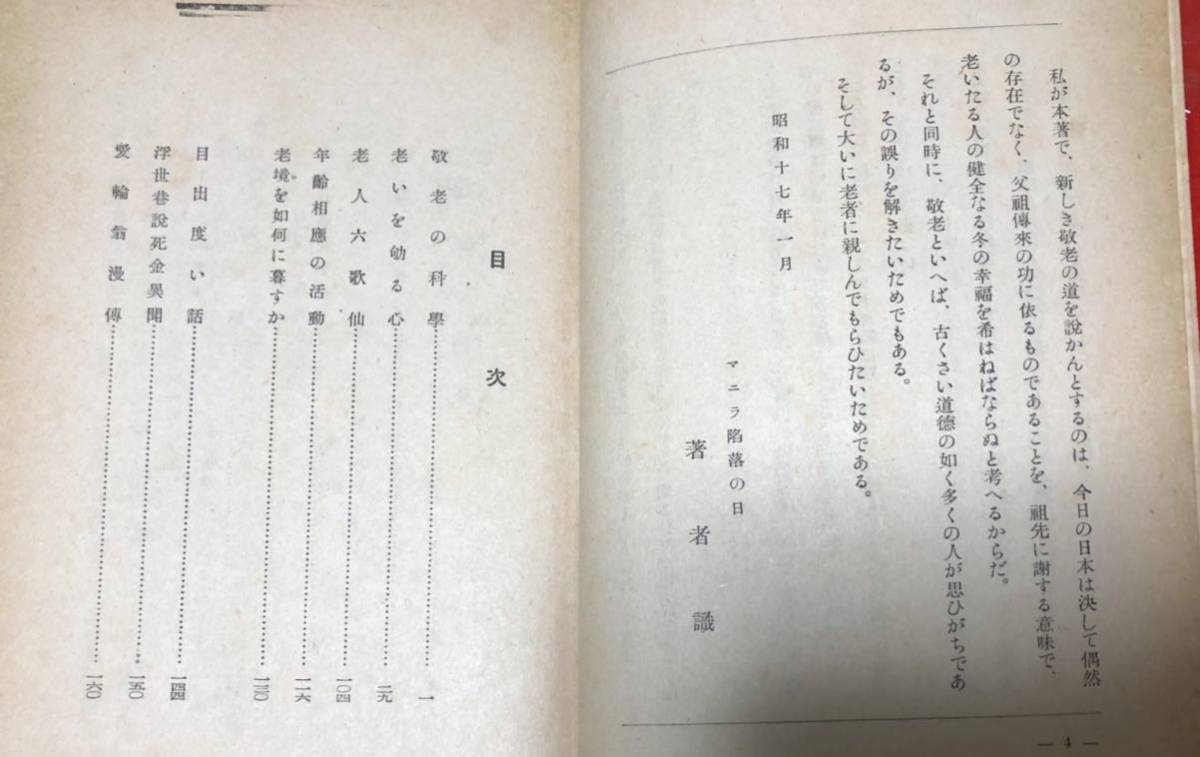 私が本著で、新しき敬老の道を說かんとするのは、今日の日本は決して偶然
の存在でなく、父祖傳來の功に依るものであることを、祖先に謝する意味で、
老いたる人の健全なる冬の幸福を希はねばならぬと考へるからだ。
それと同時に、敬老といへば、古くさい道德の如く多くの人が思ひがちであ
るが、その誤りを解きたいためでもある。
そして大いに老者に親しんでもらひたいためである。
昭和十七年一月
マニラ陷落の日
著者識
— 4 —
目次
敬老の科學……一
老いを劬る心……二九
老人六歌仙……一〇四
年齡相應の活動……一一六
老境を如何に暮すか……一三〇
目出度い話……一四四
浮世巷說死金異聞……一五〇
愛輪翁漫傳……一六〇